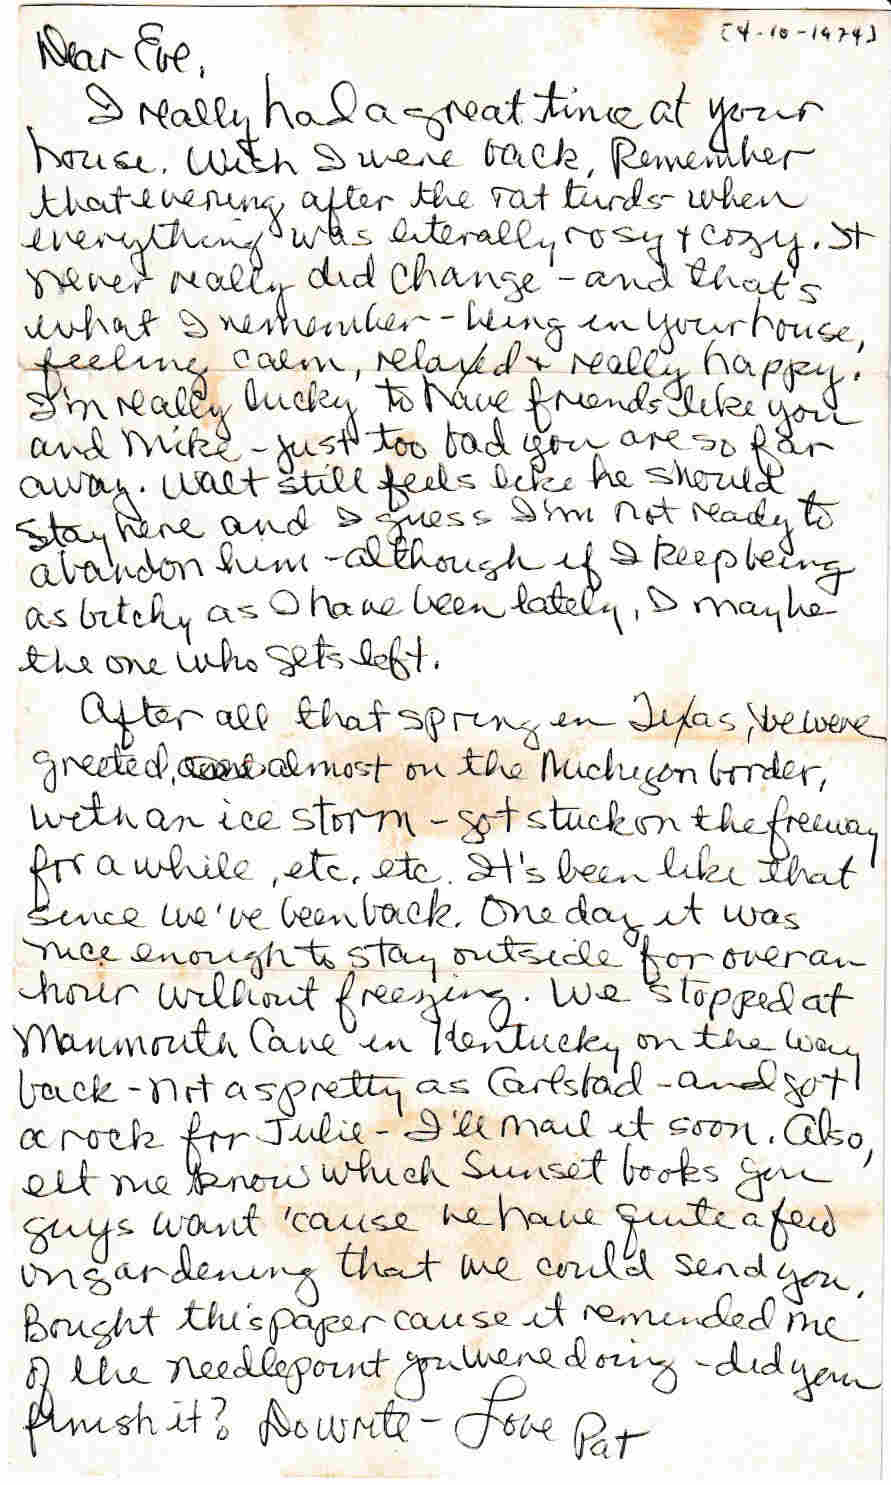 [4-10-1974]
Dear Eve,
I really had a great time at your
house. Wish I were back, Remember
that evening after the rat turds when
everything was literally rosy + cozy. It
never really did change - and that's
what I remember - being in your house,
feeling calm, relaxed + really happy.
I'm really lucky to have friends like you
and Mike - just too bad you are so far
away. Walt still feels like he should
stay here and I guess I'm not ready to
abandon him - although if I keep being
as bitchy as I have been lately, I may be
the one who gets left.
After all that spring in Texas, we were
greeted, almost on the Michigan border,
with an ice storm - got stuck on the freeway
for a while, etc. etc. It's been like that
since we've been back. One day it was
nice enough to stay outside for over an
hour without freezing. We stopped at
Mammouth Cave in Kentucky on the way
back - not as pretty as Carlsbad - and got
a rock for Julie - I'll mail it soon. Also,
elt me know which Sunset books you
guys want 'cause we have quite a few
on gardening that we could send you.
Bought this paper cause it reminded me
of the needlepoint you were doing - did you
finish it? Do write - Love Pat